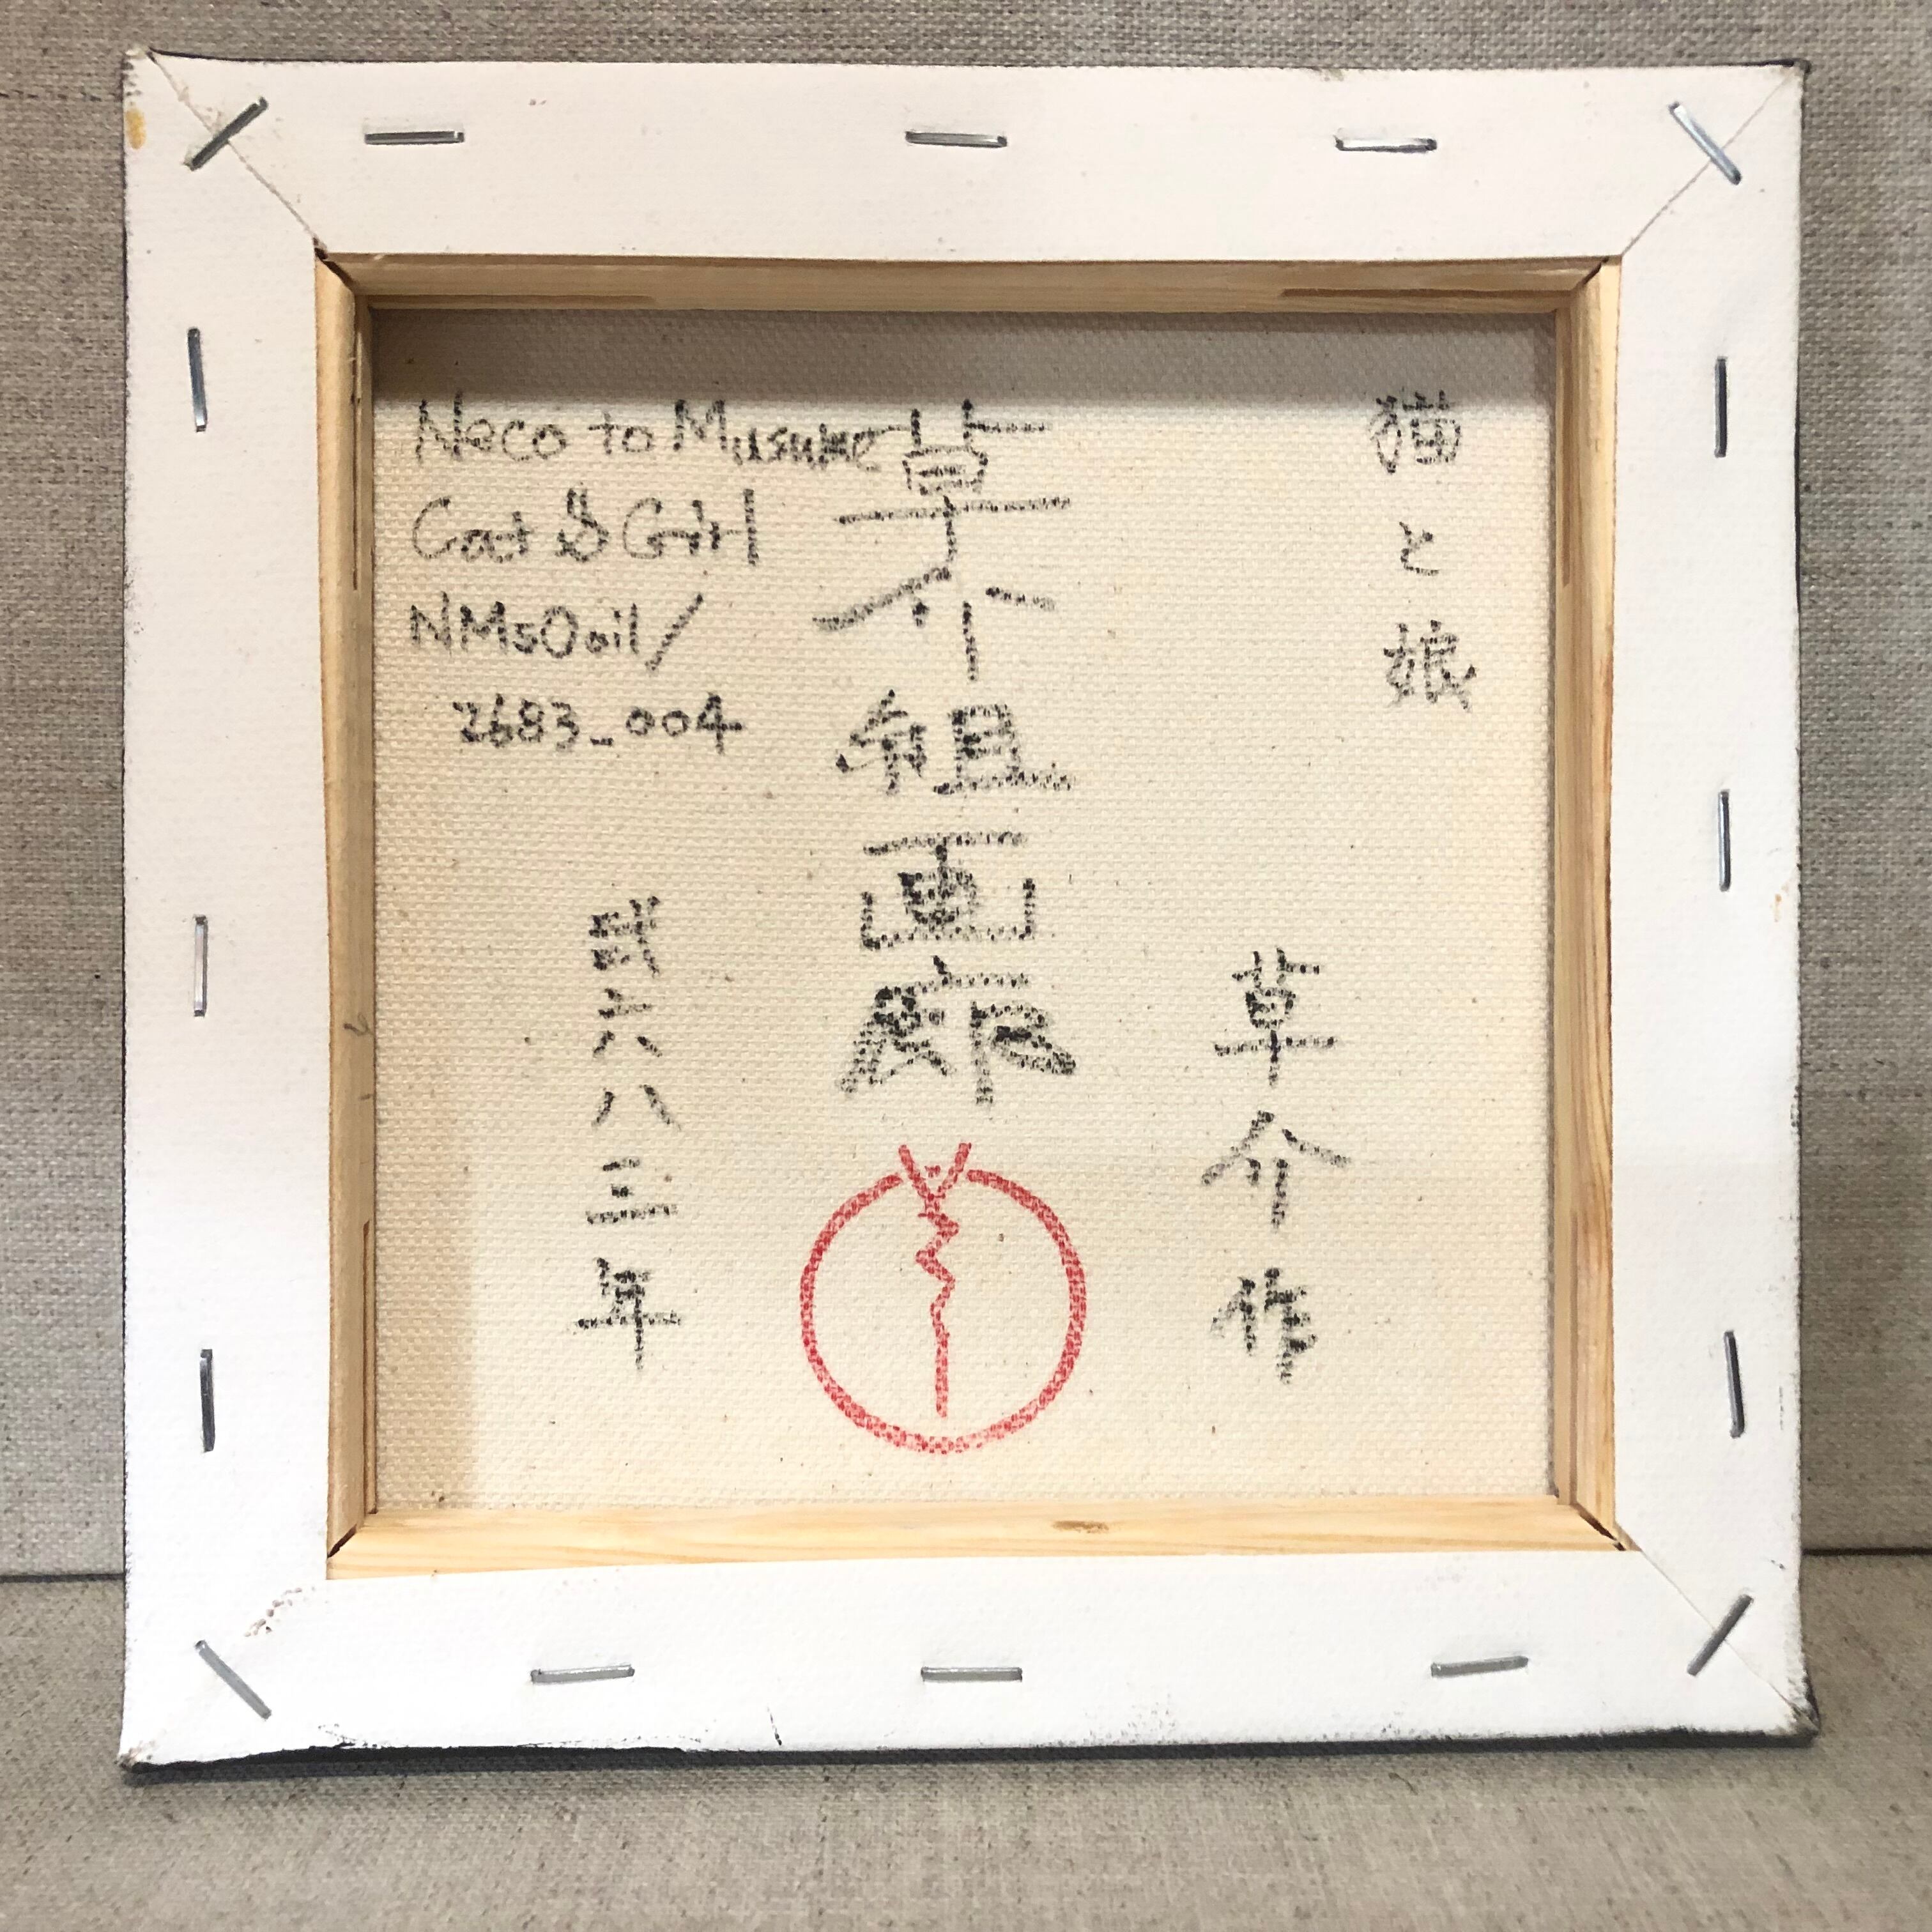 猫と娘
草介作
草介組画廊
弐六八三年
Neco to Musume
Cat & Girl
NMsOoil/
2683_004